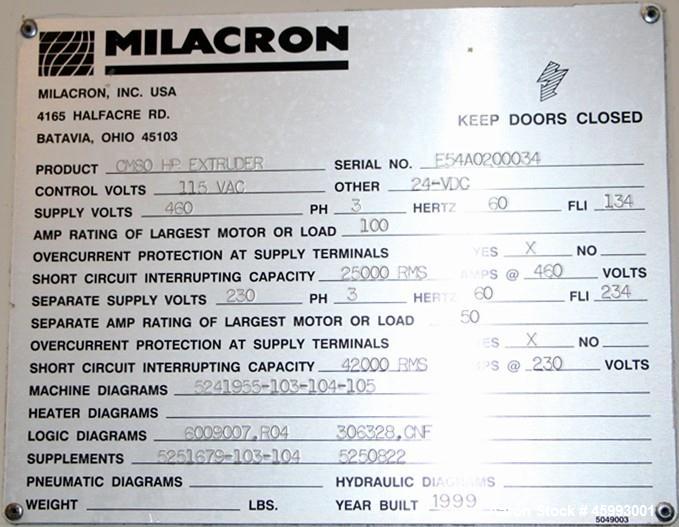 MILACRON
MILACRON, INC. USA
4165 HALFACRE RD.
BATAVIA, OHIO 45103
KEEP DOORS CLOSED
PRODUCT CM80 HP EXTRUDER SERIAL NO. E54A0200034
CONTROL VOLTS 115 VAC OTHER 24-VDC
SUPPLY VOLTS 460 PH 3 HERTZ 60 FLI 134
AMP RATING OF LARGEST MOTOR OR LOAD 100
OVERCURRENT PROTECTION AT SUPPLY TERMINALS YES X NO
SHORT CIRCUIT INTERRUPTING CAPACITY 25000 RMS AMPS @ 460 VOLTS
SEPARATE SUPPLY VOLTS 230 PH 3 HERTZ 60 FLI 234
SEPARATE AMP RATING OF LARGEST MOTOR OR LOAD 50
OVERCURRENT PROTECTION AT SUPPLY TERMINALS YES X NO
SHORT CIRCUIT INTERRUPTING CAPACITY 42000 RMS AMPS @ 230 VOLTS
MACHINE DIAGRAMS 5241955-103-104-105
HEATER DIAGRAMS
LOGIC DIAGRAMS 6009007.R04 306328.CNF
SUPPLEMENTS 5251679-103-104 5250822
PNEUMATIC DIAGRAMS HYDRAULIC DIAGRAMS
WEIGHT LBS. YEAR BUILT 1999
Stock # 45993001
5049003